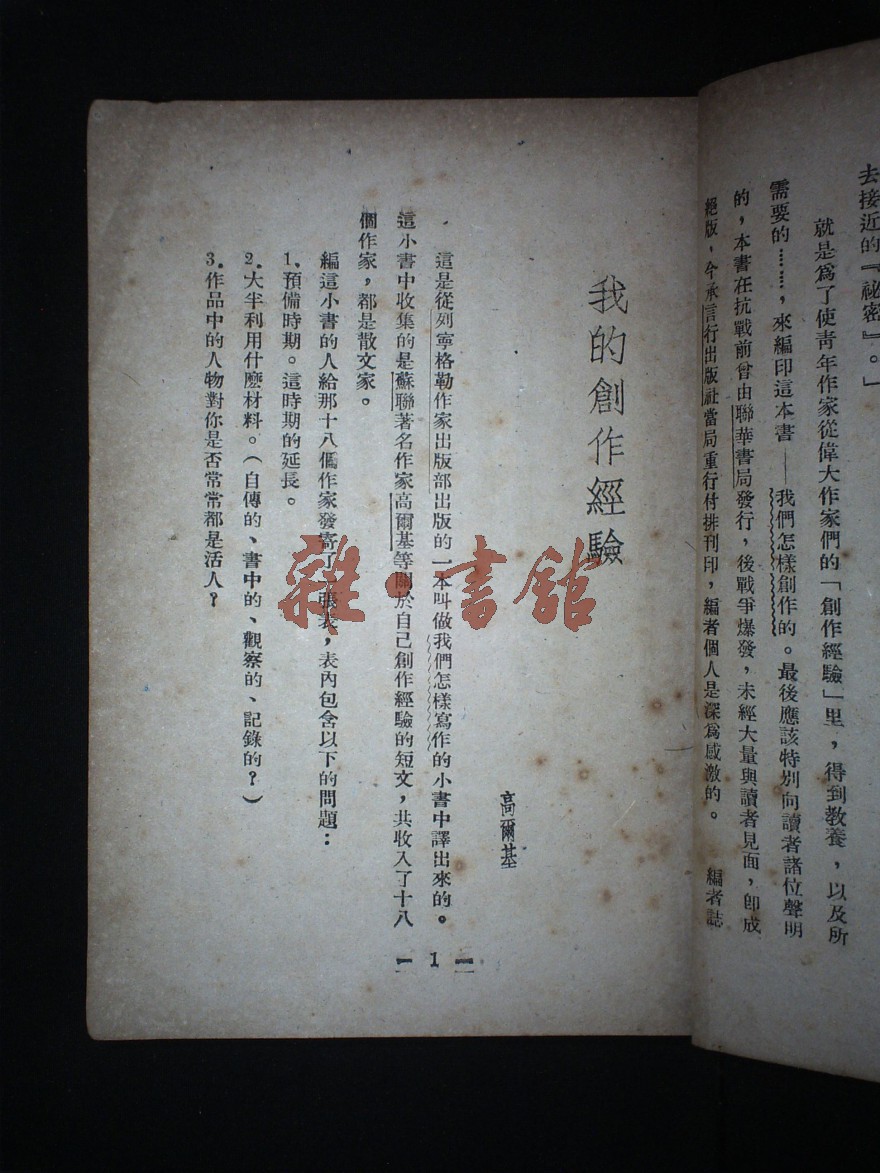 去接近的『祕密』。」
就是爲了使靑年作家從偉大作家們的「創作經驗」里，得到敎養，以及所
需要的………，來編印這本書——我們怎樣創作的。最後應該特別向讀者諸位聲明
的，本書在抗戰前曾由聯華書局發行，後戰爭爆發，未經大量與讀者見面，卽成
絕版，今承言行出版社當局重行付排刊印，編者個人是深爲感激的。
編者誌
我的創作經驗
高爾基
這是從列寧格勒作家出版部出版的一本叫做我們怎樣寫作的小書中譯出來的。
這小書中收集的是蘇聯著名作家高爾基等關於自己創作經驗的短文，共收入了十八
個作家，都是散文家。
編這小書的人給那十八個作家發寄了一張表，表內包含以下的問題：
1．預備時期。這時期的延長。
2．大半利用什麽材料。（自傳的、書中的、觀察的、記錄的？）
3．作品中的人物對你是否常常都是活人？
1
雜·書館